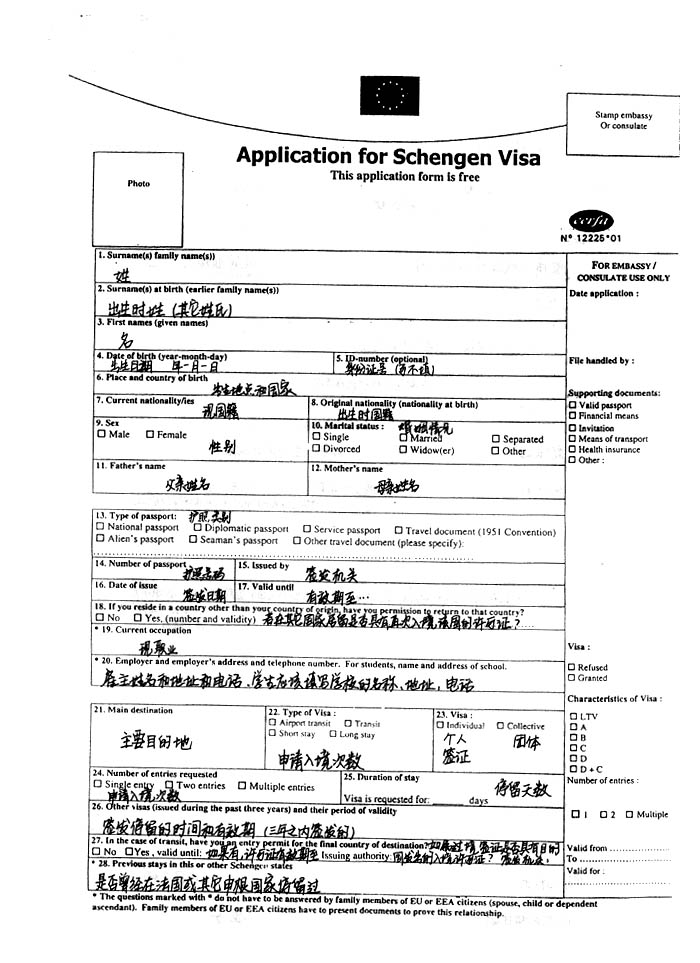 Stamp embassy
Or consulate
Application for Schengen Visa
This application form is free
Photo
cerfa
N° 12225*01
1. Surname(s) family name(s))
姓
2. Surname(s) at birth (earlier family name(s))
出生时姓 (其它姓氏)
3. First names (given names)
名
4. Date of birth (year-month-day)
出生日期 年-月-日
5. ID-number (optional)
身份证号 (可不填)
6. Place and country of birth
出生地点和国家
7. Current nationality/ies
现国籍
8. Original nationality (nationality at birth)
出生时国籍
9. Sex
☐ Male ☐ Female
性别
10. Marital status : 婚姻情况
☐ Single ☐ Married ☐ Separated
☐ Divorced ☐ Widow(er) ☐ Other
11. Father's name
父亲姓名
12. Mother's name
母亲姓名
13. Type of passport: 护照类别
☐ National passport ☐ Diplomatic passport ☐ Service passport ☐ Travel document (1951 Convention)
☐ Alien's passport ☐ Seaman's passport ☐ Other travel document (please specify):
14. Number of passport
护照号码
15. Issued by
签发机关
16. Date of issue
签发日期
17. Valid until
有效期至...
18. If you reside in a country other than your country of origin, have you permission to return to that country?
☐ No ☐ Yes, (number and validity) 若在其它国家居留是否具有再次入境该国的许可证?
* 19. Current occupation
现职业
* 20. Employer and employer's address and telephone number. For students, name and address of school.
雇主姓名和地址和电话、学生应该填写学校的名称、地址, 电话
21. Main destination
主要目的地
22. Type of Visa :
☐ Airport transit ☐ Transit
☐ Short stay ☐ Long stay
申请入境次数
23. Visa :
☐ Individual ☐ Collective
个人 团体
签证
24. Number of entries requested
☐ Single entry ☐ Two entries ☐ Multiple entries
申请入境次数
25. Duration of stay
停留天数
Visa is requested for: ______ days
26. Other visas (issued during the past three years) and their period of validity
签发停留的时间和有效期 (三年之内签发的)
27. In the case of transit, have you an entry permit for the final country of destination? 如果过境 签证是否具有目的
☐ No ☐ Yes, valid until: 如果有, 许可证有效期至 Issuing authority: 国发给的入境许可证? 签发机关:
* 28. Previous stays in this or other Schengen states
是否曾经在法国或其它申根国家停留过
* The questions marked with * do not have to be answered by family members of EU or EEA citizens (spouse, child or dependent
ascendant). Family members of EU or EEA citizens have to present documents to prove this relationship.
FOR EMBASSY /
CONSULATE USE ONLY
Date application :
File handled by :
Supporting documents:
☐ Valid passport
☐ Financial means
☐ Invitation
☐ Means of transport
☐ Health insurance
☐ Other :
Visa :
☐ Refused
☐ Granted
Characteristics of Visa :
☐ LTV
☐ A
☐ B
☐ C
☐ D
☐ D + C
Number of entries :
☐ 1 ☐ 2 ☐ Multiple
Valid from
To
Valid for :